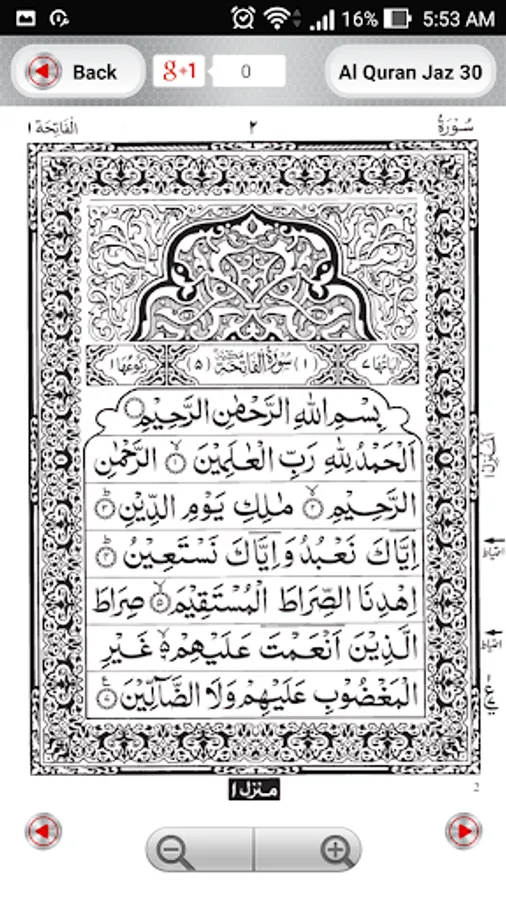 16% 5:53 AM
Back g+1 0 Al Quran Jaz 30
سُوْرَةُ ٢ اَلْفَاتِحَة ١
اٰيَاتُهَا ٧ (١) سُوْرَةُ الْفَاتِحَةِ مَكِّيَّةٌ (٥) رُكُوْعُهَا ١
بِسْمِ اللّٰهِ الرَّحْمٰنِ الرَّحِيْمِ
اَلْحَمْدُ لِلّٰهِ رَبِّ الْعٰلَمِيْنَ ۙ﴿١﴾ الرَّحْمٰنِ
الرَّحِيْمِ ۙ﴿٢﴾ مٰلِكِ يَوْمِ الدِّيْنِ ؕ﴿٣﴾
اِيَّاكَ نَعْبُدُ وَاِيَّاكَ نَسْتَعِيْنُ ؕ﴿٤﴾
اِهْدِنَا الصِّرَاطَ الْمُسْتَقِيْمَ ۙ﴿٥﴾ صِرَاطَ
الَّذِيْنَ اَنْعَمْتَ عَلَيْهِمْ ۙ﴿٦﴾ غَيْرِ
الْمَغْضُوْبِ عَلَيْهِمْ وَلَا الضَّآلِّيْنَ ﴿٧﴾
منزل ١
2